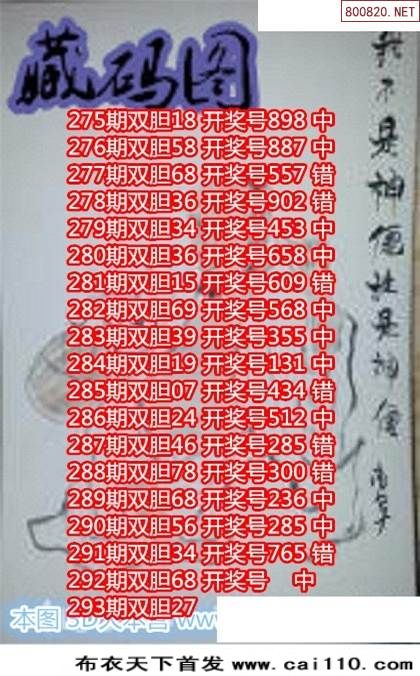 800820.NET
藏码图
275期双胆18 开奖号898 中
276期双胆58 开奖号887 中
277期双胆68 开奖号557 错
278期双胆36 开奖号902 错
279期双胆34 开奖号453 中
280期双胆36 开奖号658 中
281期双胆15 开奖号609 错
282期双胆69 开奖号568 中
283期双胆39 开奖号355 中
284期双胆19 开奖号131 中
285期双胆07 开奖号434 错
286期双胆24 开奖号512 中
287期双胆46 开奖号285 错
288期双胆78 开奖号300 错
289期双胆68 开奖号236 中
290期双胆56 开奖号285 中
291期双胆34 开奖号765 错
292期双胆68 开奖号 中
293期双胆27
我不是神僧谁是神僧
本图 3D大本营 www
布衣天下首发 www.cai110.com